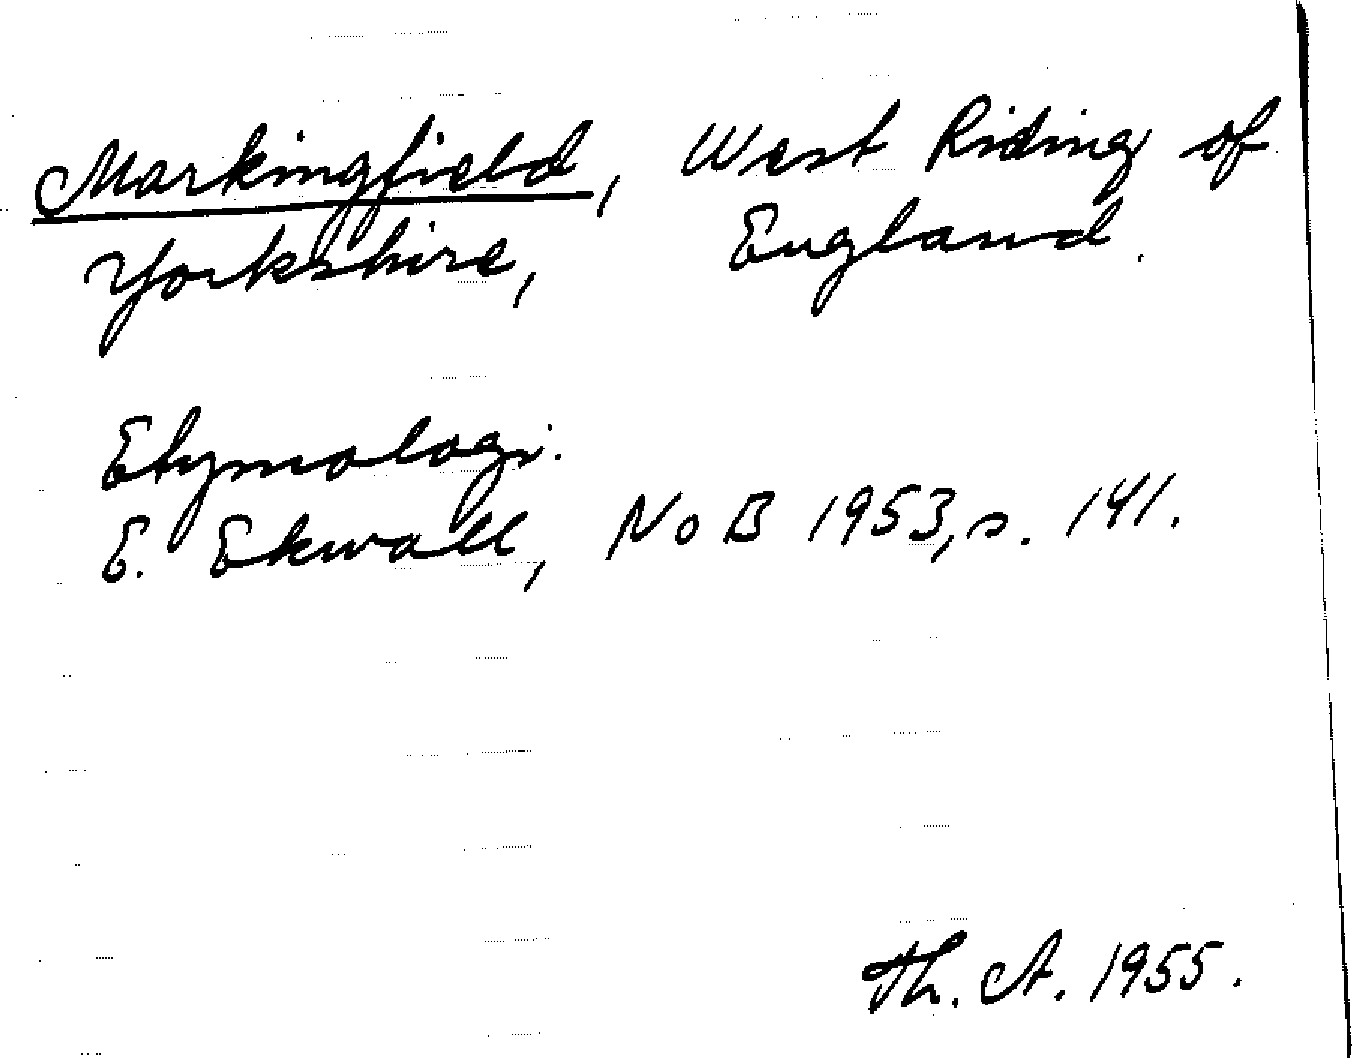 Markingfield, West Riding of
Yorkshire, England.
Etymologi:
E. Ekwall, NoB 1953, s. 141.
Th. A. 1955.